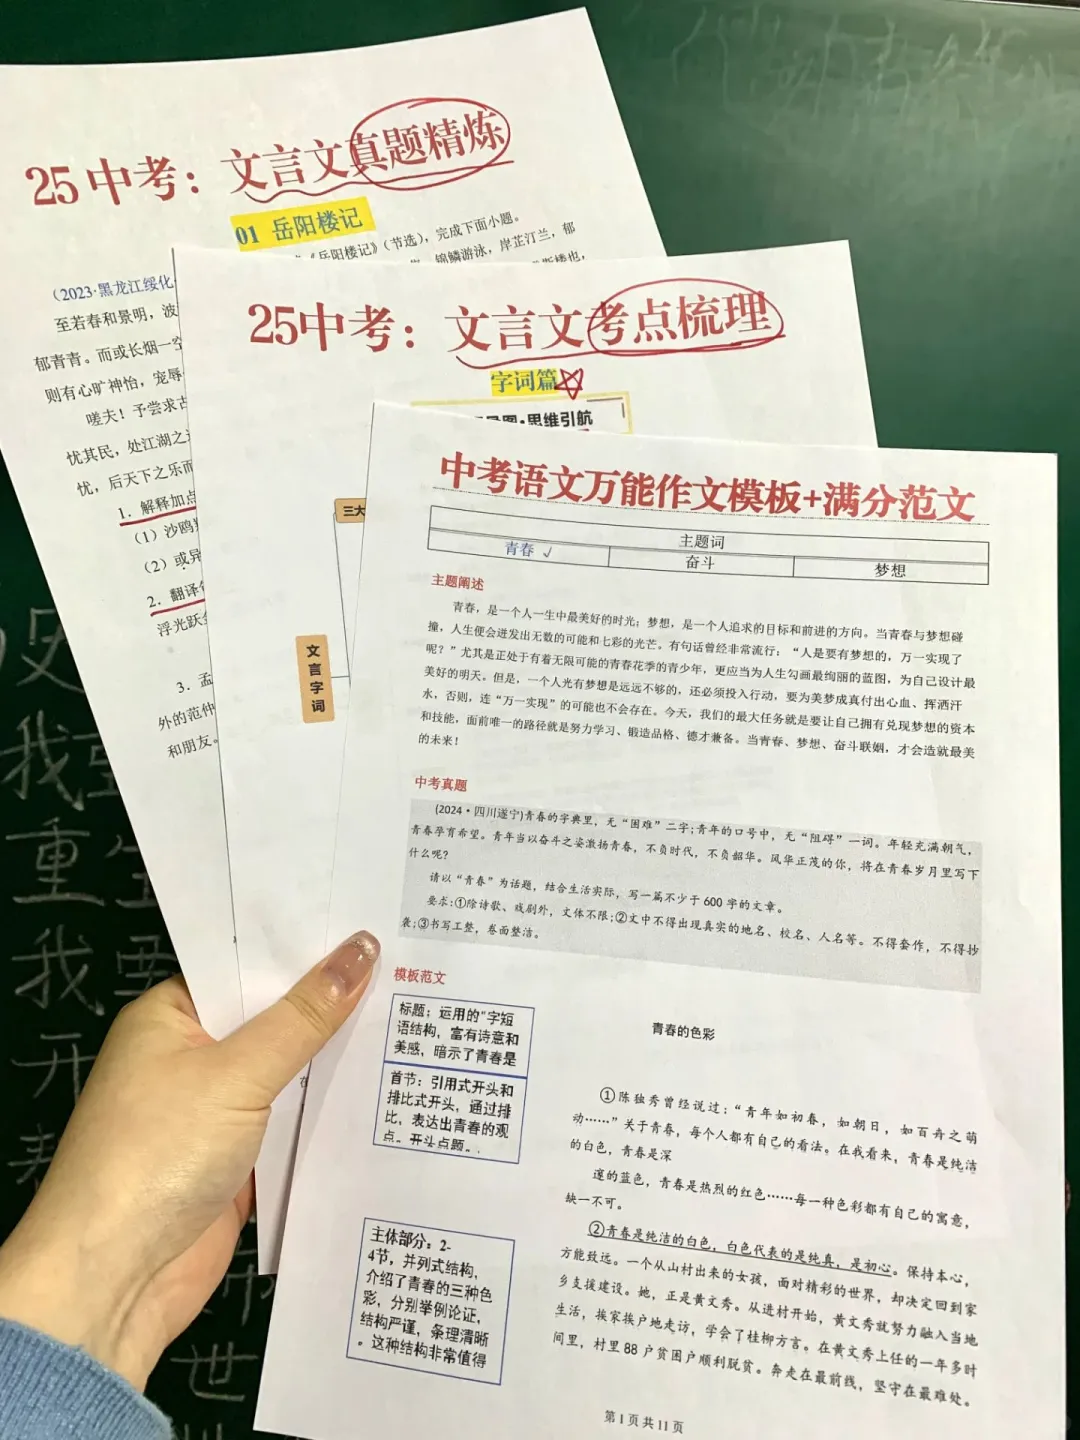 25中考：文言文真题精炼
01 岳阳楼记
《岳阳楼记》（节选），完成下面小题。
（2023·黑龙江绥化
锦鳞游泳，岸芷汀兰，郁
至若春和景明，波
郁青青。而或长烟一空
则有心旷神怡，宠辱
嗟夫！予尝求古
忧其民，处江湖之远
忧，后天下之乐而
1．解释加点
（1）沙鸥翔
（2）或异
2．翻译
浮光跃金
3．孟
外的范仲
和朋友。
25中考：文言文考点梳理
字词篇
导图·思维引航
三大
文言字词
中考语文万能作文模板+满分范文
主题词
青春 ✓
奋斗
梦想
主题阐述
青春，是一个人一生中最美好的时光；梦想，是一个人追求的目标和前进的方向。当青春与梦想碰
撞，人生便会迸发出无数的可能和七彩的光芒。有句话曾经非常流行：“人是要有梦想的，万一实现了
呢？”尤其是正处于有着无限可能的青春花季的青少年，更应当为人生勾画最绚丽的蓝图，为自己设计最
美好的明天。但是，一个人光有梦想是远远不够的，还必须投入行动，要为美梦成真付出心血、挥洒汗
水，否则，连“万一实现”的可能也不会存在。今天，我们的最大任务就是要让自己拥有兑现梦想的资本
和技能，面前唯一的路径就是努力学习、锻造品格、德才兼备。当青春、梦想、奋斗联姻，才会造就最美
的未来！
中考真题
(2024·四川遂宁)青春的字典里，无“困难”二字；青年的口号中，无“阻碍”一词。年轻充满朝气，
青春孕育希望。青年当以奋斗之姿激扬青春，不负时代，不负韶华。风华正茂的你，将在青春岁月里写下
什么呢？
请以“青春”为话题，结合生活实际，写一篇不少于600字的文章。
要求：①除诗歌、戏剧外，文体不限；②文中不得出现真实的地名、校名、人名等。不得套作，不得抄
袭；③书写工整，卷面整洁。
模板范文
标题：运用的“字短
语结构，富有诗意和
美感，暗示了青春是
首节：引用式开头和
排比式开头，通过排
比，表达出青春的观
点。开头点题。
主体部分：2-
4节，并列式结构，
介绍了青春的三种色
彩，分别举例论证，
结构严谨，条理清晰
。这种结构非常值得
青春的色彩
①陈独秀曾经说过：“青年如初春，如朝日，如百卉之萌
动……”关于青春，每个人都有自己的看法。在我看来，青春是纯洁
的白色，青春是深
邃的蓝色，青春是热烈的红色……每一种色彩都有自己的寓意，
缺一不可。
②青春是纯洁的白色，白色代表的是纯真，是初心。保持本心，
方能致远。一个从山村出来的女孩，面对精彩的世界，却决定回到家
乡支援建设。她，正是黄文秀。从进村开始，黄文秀就努力融入当地
生活，挨家挨户地走访，学会了桂柳方言。在黄文秀上任的一年多时
间里，村里88户贫困户顺利脱贫。奔走在最前线，坚守在最难处。
第1页共11页
我
重生
我
开
世